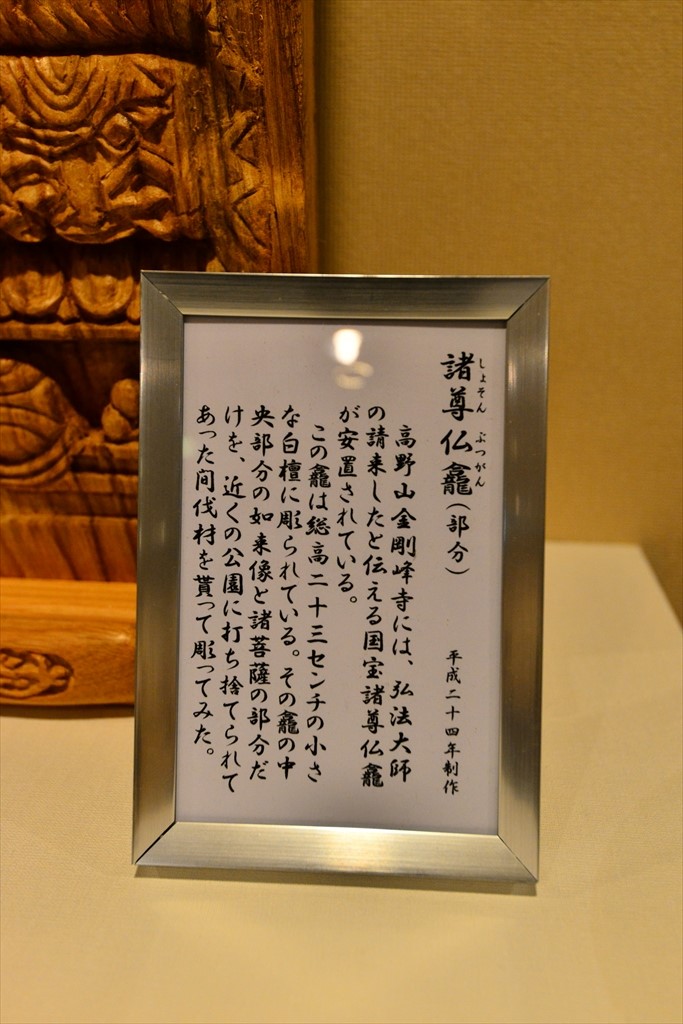 諸尊仏龕(部分)
しょそん ぶつがん
平成二十四年制作
高野山金剛峰寺には、弘法大師
の請来したと伝える国宝諸尊仏龕
が安置されている。
この龕は総高二十三センチの小さ
な白檀に彫られている。その龕の中
央部分の如来像と諸菩薩の部分だ
けを、近くの公園に打ち捨てられて
あった间伐材を貰って彫ってみた。